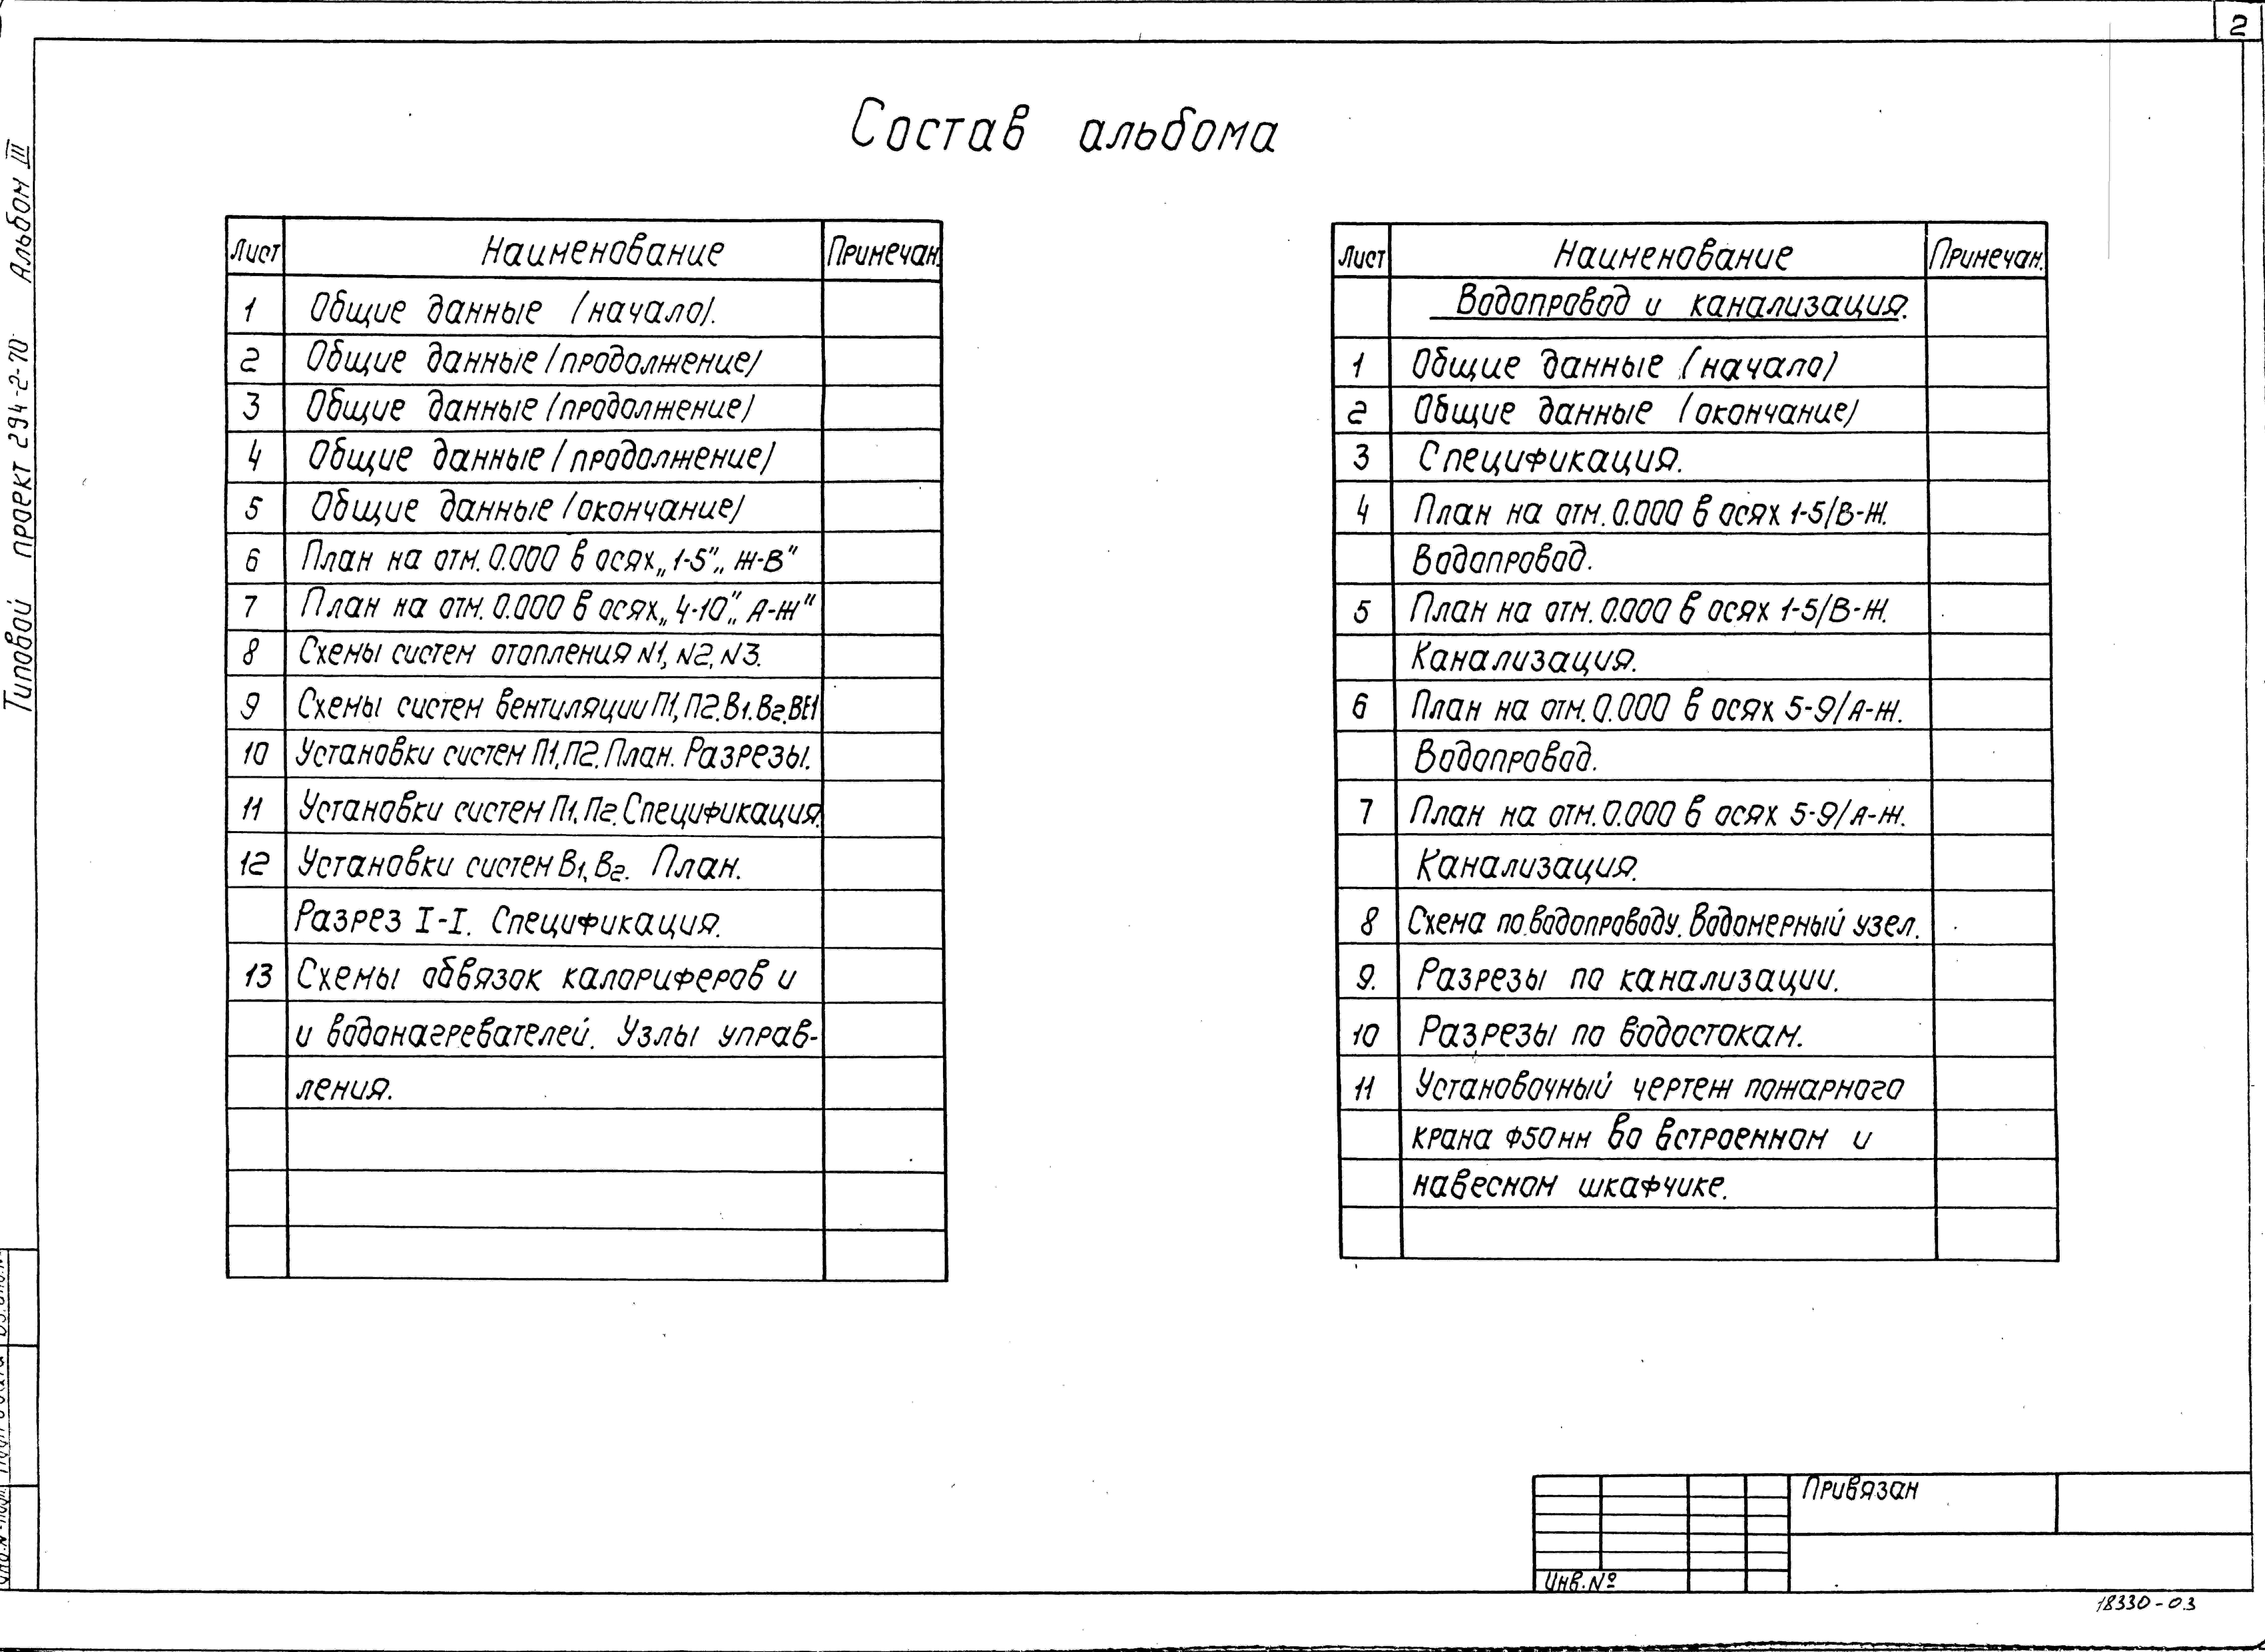 2
Типовой проект 294-2-70 Альбом III
Состав альбома
Лист Наименование Примечан.
1 Общие данные /начало/.
2 Общие данные /продолжение/
3 Общие данные /продолжение/
4 Общие данные /продолжение/
5 Общие данные /окончание/
6 План на отм. 0.000 в осях „1-5”„ Ж-В”
7 План на отм. 0.000 в осях „4-10”„ А-Ж”
8 Схемы систем отопления N1, N2, N3.
9 Схемы систем вентиляции П1, П2. В1. В2. ВЕ1
10 Установки систем П1, П2. План. Разрезы.
11 Установки систем П1, П2. Спецификация.
12 Установки систем В1, В2. План.
Разрез I-I. Спецификация.
13 Схемы обвязок калориферов и
и водонагревателей. Узлы управ-
ления.
Лист Наименование Примечан.
Водопровод и канализация.
1 Общие данные (начало)
2 Общие данные /окончание/
3 Спецификация.
4 План на отм. 0.000 в осях 1-5/В-Ж.
Водопровод.
5 План на отм. 0.000 в осях 1-5/В-Ж.
Канализация.
6 План на отм. 0.000 в осях 5-9/А-Ж.
Водопровод.
7 План на отм. 0.000 в осях 5-9/А-Ж.
Канализация.
8 Схема по водопроводу. Водомерный узел.
9. Разрезы по канализации.
10 Разрезы по водостокам.
11 Установочный чертеж пожарного
крана Ф50мм во встроенном и
навесном шкафчике.
Привязан
Инв. №
18330-03